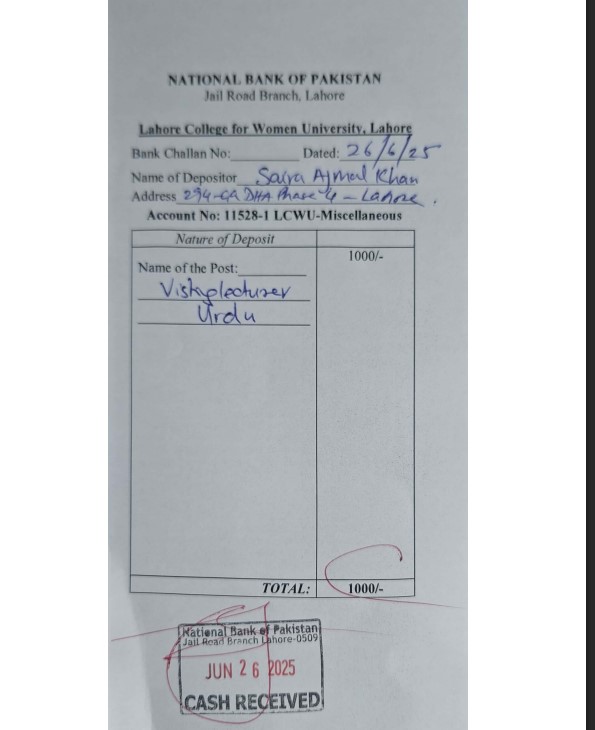 NATIONAL BANK OF PAKISTAN
Jail Road Branch, Lahore
Lahore College for Women University, Lahore
Bank Challan No:________ Dated: 26/6/25
Name of Depositor Saira Ajmal Khan
Address 294-GA DHA Phase 4 - Lahore.
Account No: 11528-1 LCWU-Miscellaneous
Nature of Deposit
1000/-
Name of the Post:________
lecturer
Urdu
TOTAL: 1000/-
National Bank of Pakistan
Jail Road Branch Lahore-0509
JUN 26 2025
CASH RECEIVED